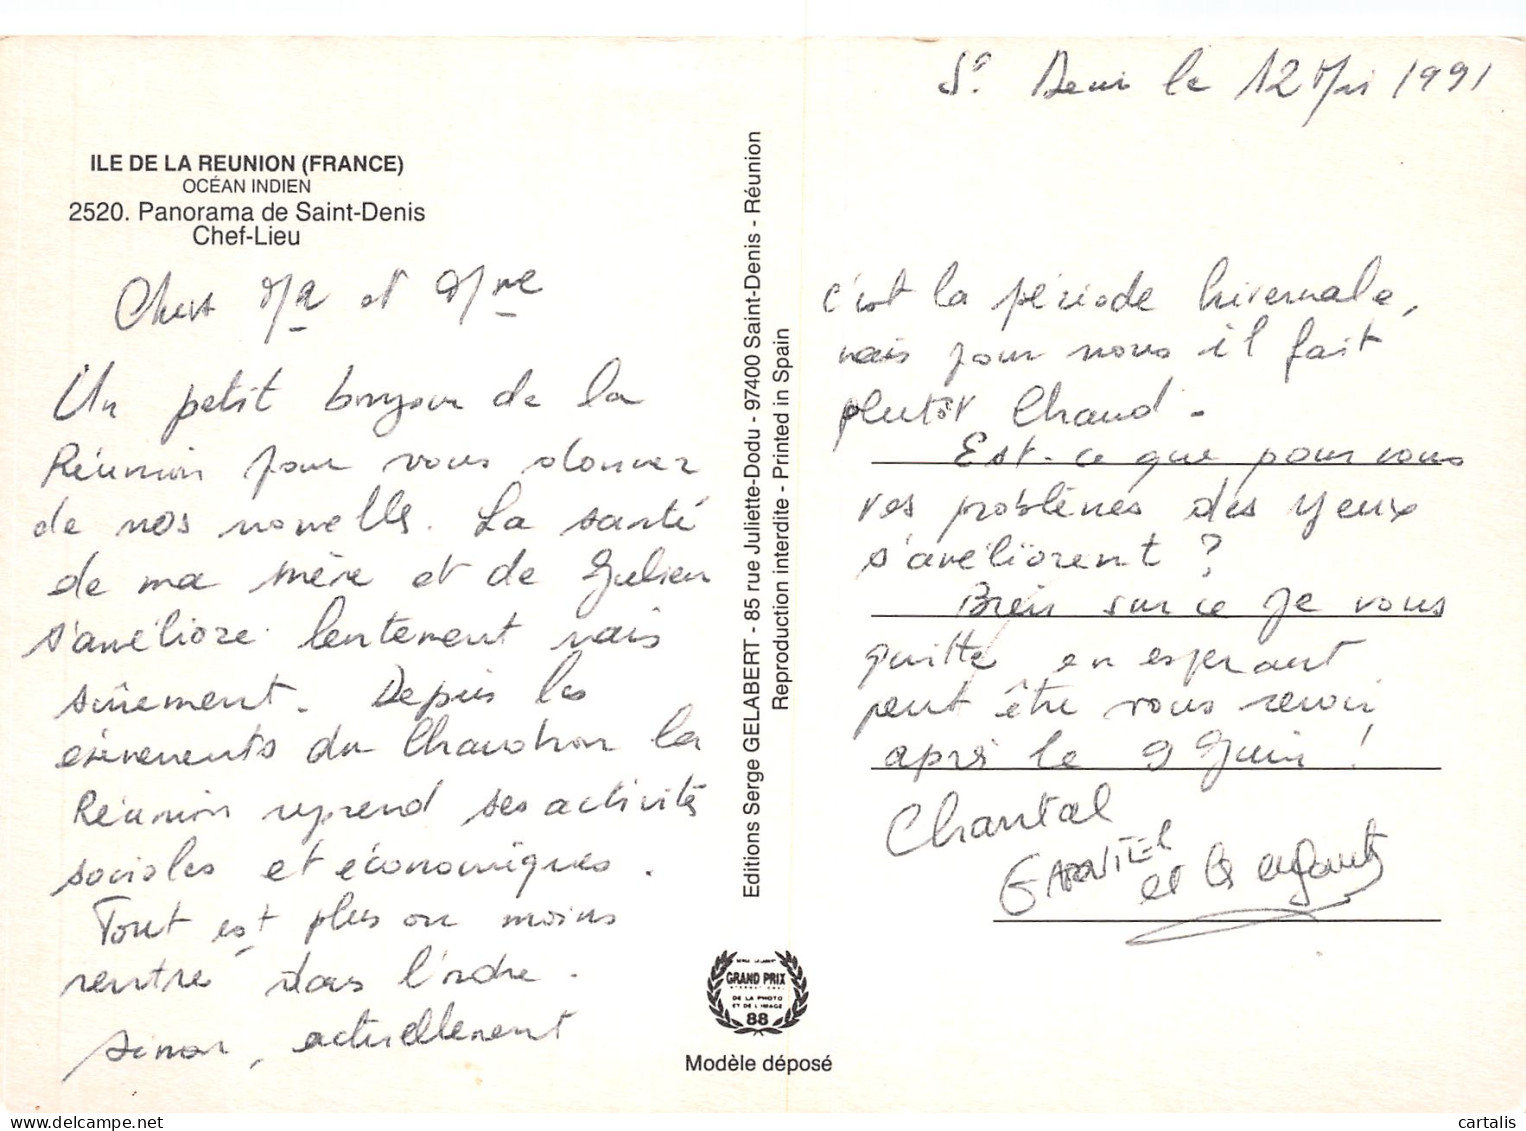 ILE DE LA REUNION (FRANCE)
OCÉAN INDIEN
2520. Panorama de Saint-Denis
Chef-Lieu
Chers Mr et Mme
Un petit bonjour de la
Réunion pour vous donner
de nos nouvelles. La santé
de ma mère et de Julien
s'améliore lentement mais
sûrement. Depuis les
évènements du Chaudron la
Réunion reprend ses activités
sociales et économiques.
Tout est plus ou moins
rentré dans l'ordre.
Sinon, actuellement
Editions Serge GELABERT - 85 rue Juliette-Dodu - 97400 Saint-Denis - Réunion
Reproduction interdite - Printed in Spain
GRAND PRIX
INTERNATIONAL
DE LA PHOTO
ET DE L'IMAGE
88
Modèle déposé
St Denis le 12 Mai 1991
c'est la période hivernale,
mais pour nous il fait
plutôt Chaud.
Est-ce que pour vous
vos problèmes des yeux
s'améliorent ?
Bien sur ce je vous
quitte en espérant
peut être vous revoir
après le 9 Juin !
Chantal
et les enfants
cartalis